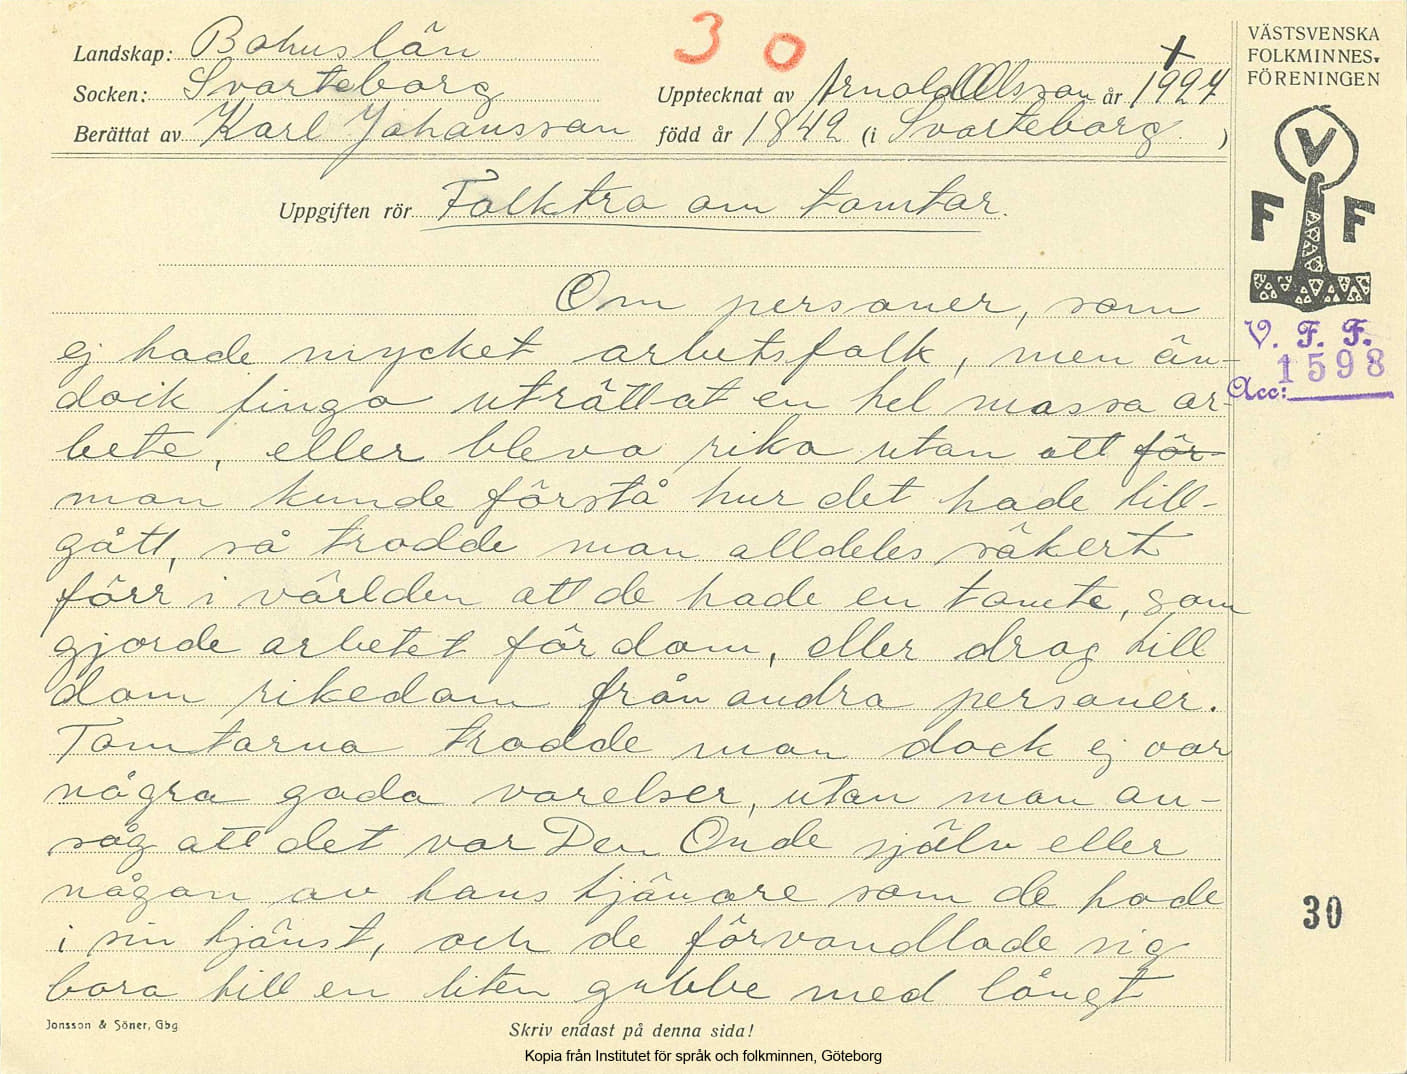 30
VÄSTSVENSKA
FOLKMINNES-
FÖRENINGEN
Landskap: Bohuslän
Socken: Svarteborg
Upptecknat av Arnold Olsson år 1924
Berättat av Karl Johansson född år 1842 (i Svarteborg )
V
F F
Uppgiften rör Folktro om tomtar.
V. F. F.
Acc: 1598
Om personer, som
ej hade mycket arbetsfolk, men än-
dock fingo uträttat en hel massa ar-
bete, eller bleva rika utan att för-
man kunde förstå hur det hade till-
gått, så trodde man alldeles säkert
förr i världen att de hade en tomte, som
gjorde arbetet för dom, eller drog till
dom rikedom från andra personer.
Tomtarna trodde man dock ej var
några goda varelser, utan man an-
såg att det var Den Onde själv eller
någon av hans tjänare som de hade
i sin tjänst, och de förvandlade sig
bara till en liten gubbe med långt
30
Jonsson & Söner, Gbg
Skriv endast på denna sida!
Kopia från Institutet för språk och folkminnen, Göteborg